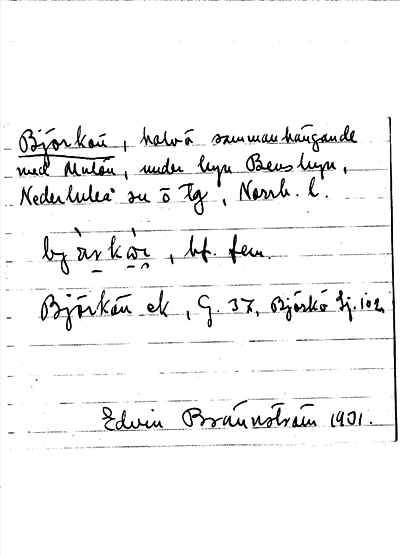 Björkön, halvö sammanhängande
med Mulön, under byn Bensbyn,
Nederluleå sn o tg, Norrb. l.
bf. fem.
Björkön ek, G. 37, Björkö
Edvin Brännström 1931.